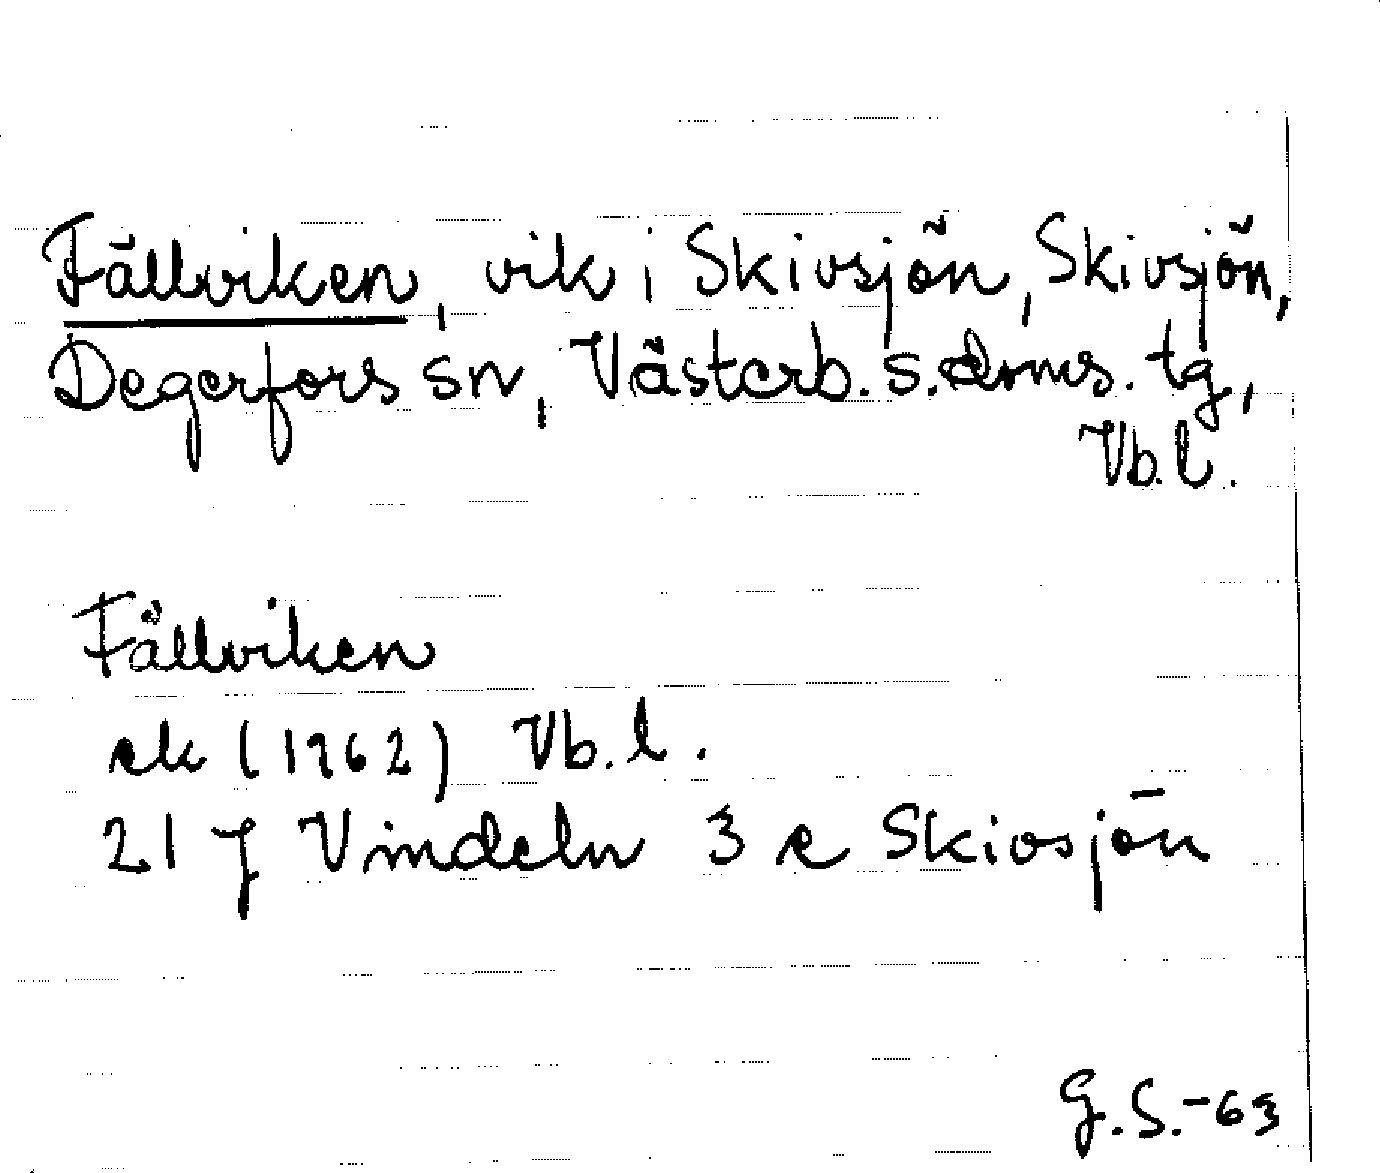 Fällviken, vik i Skivsjön, Skivsjön,
Degerfors sn, Västerb. s. doms. tg,
Vb. l.
Fällviken
ek (1962) Vb. l.
21 J Vindeln 3 e Skivsjön
G.S.-63